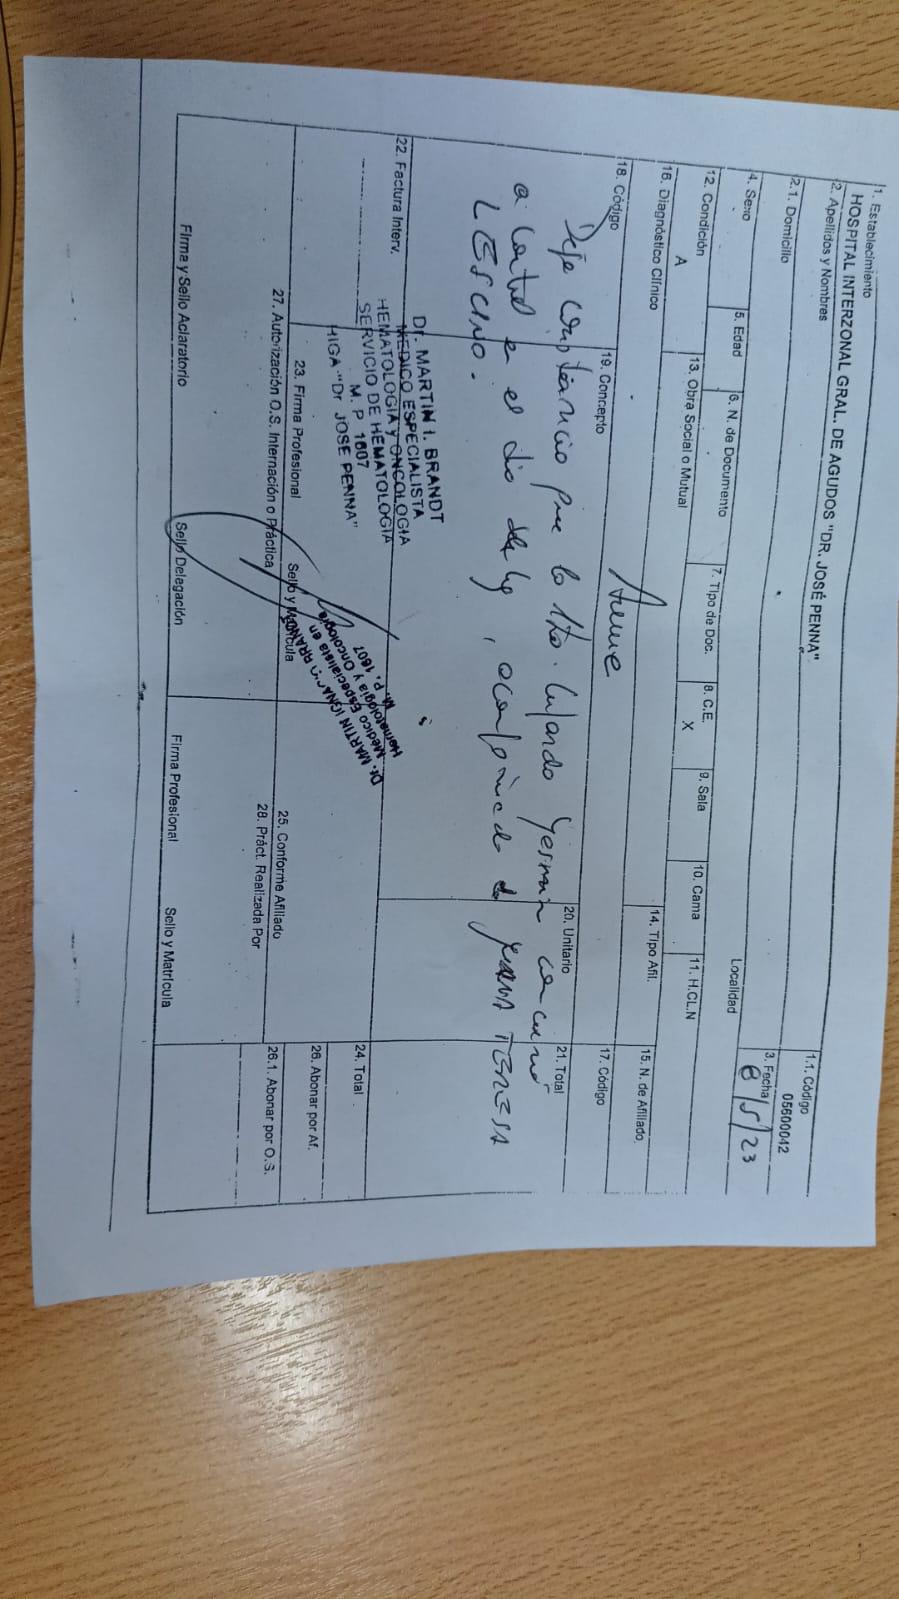 1. Establecimiento
HOSPITAL INTERZONAL GRAL. DE AGUDOS "DR. JOSÉ PENNA"
1.1. Código
05600042
2. Apellidos y Nombres
3. Fecha
8/5/23
2.1. Domicilio
Localidad
4. Sexo
5. Edad
6. N. de Documento
7. Tipo de Doc.
8. C.E.
X
9. Sala
10. Cama
11. H.CL.N
12. Condición
A
13. Obra Social o Mutual
14. Tipo Afil.
15. N. de Afiliado
16. Diagnóstico Clínico
17. Código
18. Código
19. Concepto
20. Unitario
21. Total
Dejo constancia que la Sra.
a control en el día de hoy, acompañada de JUANA TERESA
LESCANO.
22. Factura Interv.
Dr. MARTIN I. BRANDT
MEDICO ESPECIALISTA
HEMATOLOGIA Y ONCOLOGIA
SERVICIO DE HEMATOLOGIA
M. P 1607
HIGA "Dr JOSE PENNA"
23. Firma Profesional
Sello y Matrícula
Médico Especialista en
Hematología y Oncología
M. P. 1607
24. Total
25. Conforme Afiliado
26. Abonar por Af.
26.1. Abonar por O.S.
27. Autorización O.S. Internación o Práctica
28. Práct. Realizada Por
Firma y Sello Aclaratorio
Sello Delegación
Firma Profesional
Sello y Matrícula